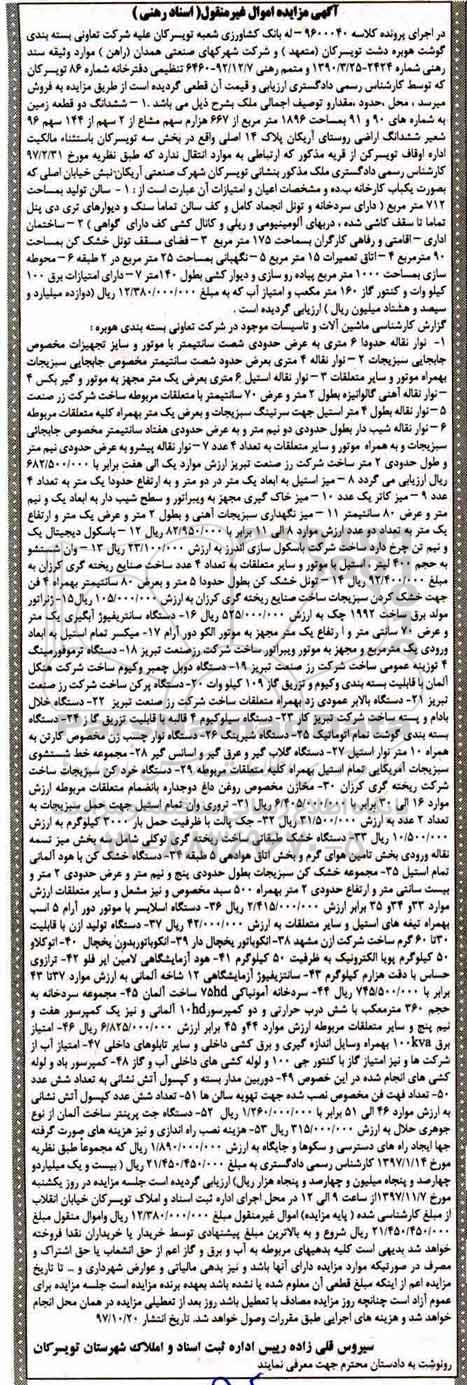 آگهی مزایده اموال غیرمنقول( اسناد رهنی )
در اجرای پرونده کلاسه ۹۶۰۰۰۴۰ – له بانک کشاورزی شعبه تویسرکان علیه شرکت تعاونی بسته بندی
گوشت هوبره دشت تویسرکان (متعهد ) و شرکت شهرکهای صنعتی همدان (راهن ) موارد وثیقه سند
رهنی شماره ۲۴۲۴-۱۳۹۰/۳/۲۵ و متمم رهنی ۹۲/۱۲/۷-۶۴۶۰ تنظیمی دفترخانه شماره ۸۶ تویسرکان
که توسط کارشناس رسمی دادگستری ارزیابی و قیمت آن قطعی گردیده است از طریق مزایده به فروش
میرسد ، محل ،حدود ،مقدارو توصیف اجمالی ملک بشرح ذیل می باشد .۱ – ششدانگ دو قطعه زمین
به شماره های ۹۰ و ۹۱ بمساحت ۱۸۹۶ متر مربع از ۶۶۷ هزارم سهم مشاع از ۲ سهم از ۱۴۴ سهم ۹۶
شعیر ششدانگ اراضی روستای آریکان پلاک ۱۴ اصلی واقع در بخش سه تویسرکان باستثناء مالکیت
اداره اوقاف تویسرکن از قریه مذکور که ارتباطی به موارد انتقال ندارد که طبق نظریه مورخ ۹۷/۲/۳۱
کارشناس رسمی دادگستری ملک مذکور بنشانی تویسرکان شهرک صنعتی آریکان-نبش خیابان اصلی که
بصورت یکباب کارخانه ب.ده و مشخصات اعیان و امتیازات آن عبارت است از : ۱ - سالن تولید بمساحت
۷۱۲ متر مربع ( دارای سردخانه و تونل انجماد کامل و کف سالن تماماً سنگ و دیوارهای تری دی پنل
تماما تا سقف کاشی شده ، دربهای آلومینیومی و ریلی و کانال کشی کف دارای گواهی ) ۲ – ساختمان
اداری – اقامتی و رفاهی کارگران بمساحت ۱۷۵ متر مربع ۳ – فضای مسقف تونل خشک کن بمساحت
۹۰ مترمربع ۴ – اتاق تعمیرات ۱۵ متر مربع ۵ – نگهبانی بمساحت ۲۵ متر مربع در ۲ طبقه ۶ – محوطه
سازی بمساحت ۱۰۰۰ متر مربع پیاده رو سازی و دیوار کشی بطول ۱۴۰متر ۷ – دارای امتیازات برق ۱۰۰
کیلو وات و کنتور گاز ۱۶۰ متر مکعب و امتیاز آب که به مبلغ ۱۲/۳۸۰/۰۰۰/۰۰۰ ریال (دوازده میلیارد و
سیصد و هشتاد میلیون ریال ) ارزیابی گردیده است .
گزارش کارشناسی ماشین آلات و تاسیسات موجود در شرکت تعاونی بسته بندی هوبره :
۱- نوار نقاله حدودا ۶ متری به عرض حدودی شصت سانتیمتر با موتور و سایر تجهیزات مخصوص
جابجایی سبزیجات ۲ – نوار نقاله ۴ متری بعرض حدود شصت سانتیمتر مخصوص جابجایی سبزیجات
بهمراه موتور و سایر متعلقات ۳ – نوار نقاله استیل ۶ متری بعرض یک متر مجهز به موتور و گیر بکس ۴
– نوار نقاله آهنی گالوانیزه بطول ۲ متر و عرض ۷۰ سانتیمتر با متعلقات مربوطه ساخت شرکت زر صنعت
۵ – نوار نقاله بطول ۴ متر استیل جهت سرتینگ سبزیجات و بعرض یک متر بهمراه کلیه متعلقات مربوطه
۶ – نوار نقاله شیب دار بطول حدودی دو نیم متر و به عرض حدودی هفتاد سانتیمتر مخصوص جابجائی
سبزیجات و به همراه موتور و سایر متعلقات به تعداد ۴ عدد ۷ – نوار نقاله پیشرو به عرض حدودی نیم متر
و طول حدودی ۲ متر ساخت شرکت رز صنعت تبریز ارزش موارد یک الی هفت برابر با ۶۸۲/۵۰۰/۰۰۰
ریال ارزیابی می گردد ۸ – میز استیل به ابعاد یک متر در دو متر و به ارتفاع حدودا یک متر به تعداد ۴
عدد ۹ – میز کاتر یک عدد ۱۰ – میز خاک گیری مجهز به ویبراتور و سطح شیب دار به ابعاد یک و نیم
متر و عرض ۸۰ سانتیمتر ۱۱ – میز نگهداری سبزیجات آهنی و بطول ۲ متر و عرض یک متر و ارتفاع
یک متر به تعداد دو عدد ارزش موارد ۸ الی ۱۱ برابر با ۸۲/۹۵۰/۰۰۰ ریال ۱۲ – باسکول دیجیتال یک
و نیم تن چرخ دارد ساخت شرکت باسکول سازی آندرز به ارزش ۲۳/۱۰۰/۰۰۰ ریال ۱۳ – وان شستشو
به حجم ۴۰۰ لیتر ، استیل با موتور و سایر متعلقات به تعداد ۴ عدد ساخت صنایع ریخته گری کرزان به
مبلغ ۹۲/۴۰۰/۰۰۰ ریال ۱۴ – تونل خشک کن بطول حدودا ۵ متر و بعرض ۸۰ سانتیمتر بهمراه ۴ فن
جهت خشک کردن سبزیجات ساخت صنایع ریخته گری کرزان به ارزش ۱۰۵/۰۰۰/۰۰۰ ریال۱۵- ژنراتور
مولد برق ساخت ۱۹۹۲ چک به ارزش ۵۲۵/۰۰۰/۰۰۰ ریال ۱۶- دستگاه سانتریفیوژ آبگیری یک متر
و عرض ۷۰ سانتی متر و ا رتفاع یک متر مجهز به موتور الکو دور آرام ۱۷- میکسر تمام استیل به ابعاد
ورودی یک مترمربع و مجهز به موتور ویبراتور ساخت شرکت رزصنعت تبریز ۱۸- دستگاه ترموفورمینگ
۴ توزینه عمومی ساخت شرکت رز صنعت تبریز ۱۹- دستگاه دوبل چمبر وکیوم ساخت شرکت هنکل
آلمان با قابلیت بسته بندی وکیوم و تزریق گاز ۱۰۹ کیلو وات ۲۰- دستگاه پرکن ساخت شرکت رز صنعت
تبریز ۲۱- دستگاه بالابر عمودی زد بهمراه متعلقات ساخت شرکت رز صنعت تبریز ۲۲- دستگاه خلال
بادام و پسته ساخت شرکت تبریز کار ۲۳- دستگاه سیلوکیوم ۴ قالبه با قابلیت تزریق گا ز ۲۴- دستگاه
بسته بندی گوشت تمام اتوماتیک ۲۵- دستگاه شیرینگ ۲۶- دستگاه نوار چسب زن مخصوص کارتن به
همراه ۱۰ متر نوار استیل ۲۷- دستگاه گلاب گیر و عرق گیر و اسانس گیر ۲۸- مجموعه خط شستشوی
سبزیجات آمریکایی تمام استیل بهمراه کلیه متعلقات مربوطه ۲۹- دستگاه خرد کن سبزیجات ساخت
شرکت ریخته گری کرزان ۳۰- مخازن مخصوص روغن داغ دوجداره باانضمام متعلقات مربوطه ارزش
موارد ۱۶ الی ۳۰ برابر با ۶/۴۰۵/۰۰۰/۰۰۰ ریال ۳۱- تروری وان تمام استیل جهت حمل سبزیجات به
تعداد ۲ عدد به ارزش ۳۱/۵۰۰/۰۰۰ ریال ۳۲- جک پالت با ظرفیت حمل بار ۳۰۰۰ کیلوگرم به ارزش
۱۰/۵۰۰/۰۰۰ ریال ۳۳- دستگاه خشک طبقاتی ساخت ریخته گری توکلی شامل سه بخش میز تسمه
نقاله ورودی بخش تامین هوای گرم و بخش اتاق هوادهی ۵ طبقه ۳۴- دستگاه خشک کن با هود آلمانی
تمام استیل ۳۵- مجموعه خشک کن سبزیجات بطول حدودی پنج و نیم متر و عرض حدودی ۲ متر و
بیست سانتی متر و ارتفاع حدودی ۲ متر بهمراه ۵۰۰ سبد مخصوص و نیز مشعل و سایر متعلقات ارزش
موارد ۳۳و ۳۴و ۳۵ برابر ارزش ۲/۴۱۵/۰۰۰/۰۰۰ ریال ۳۶- دستگاه اسلایسر با موتور دور آرام ۵ اسب
بهمراه تیغه های استیل و سایر متعلقات به ارزش ۴۲/۰۰۰/۰۰۰ ریال ۳۷- دستگاه تولید ازن با قابلیت
۳۰تا ۶۰ گرم ساخت شرکت ازن مشهد ۳۸- انکوباتور یخچال دار ۳۹- انکوباتوربدون یخچال ۴۰- اتوکلاو
۵۰ کیلوگرم پویا الکترونیک به ظرفیت ۵۰ کیلوگرم ۴۱- هود آزمایشگاهی لامین ایر فلو ۴۲- ترازوی
حساس با دقت هزارم کیلوگرم ۴۳- سانتریفیوژ آزمایشگاهی ۱۲ شاخه آلمانی به ارزش موارد ۳۷تا ۴۳
برابر با ۷۴۵/۵۰۰/۰۰۰ ریال ۴۴- سردخانه آمونیاکی ۷۵hd ساخت آلمان ۴۵- مجموعه سردخانه به
حجم ۳۶۰ مترمکعب با شش درب حرارتی و دو کمپرسور۱۰hd آلمانی و نیز یک کمپرسور هفت و
نیم پنج و سایر متعلقات مربوطه ارزش موارد ۴۴و ۴۵ برابر ارزش ۶/۸۲۵/۰۰۰/۰۰۰ ریال ۴۶- امتیاز
برق ۱۰۰kva بهمراه وسایل اندازه گیری و برق کشی داخلی و سایر تابلوهای داخلی ۴۷- امتیاز آب از
شرکت ها و نیز امتیاز گاز با کنتور جی ۱۰۰ و لوله کشی های داخلی آب و گاز ۴۸- کمپرسور باد و لوله
کشی های انجام شده در این خصوص ۴۹- دوربین مدار بسته و کپسول آتش نشانی به تعداد شش عدد
۵۰- تعداد فهت فن مخصوص نصب شده جهت تهویه سالن ها ۵۱- تعداد شش عدد کپسول آتش نشانی
به ارزش موارد ۴۶ الی ۵۱ برابر با ۱/۲۶۰/۰۰۰/۰۰۰ ریال ۵۲- دستگاه جت پرینتر ساخت آلمان از نوع
جوهری حلال به ارزش ۳۱۵/۰۰۰/۰۰۰ ریال ۵۳- هزینه نصب راه اندازی و نیز هزینه های صورت گرفته
جها ایجاد راه های دسترسی و سکوها و جایگاه به ارزش ۱/۸۹۰/۰۰۰/۰۰۰ ریال که مجموعاً طبق نظریه
مورخ ۱۳۹۷/۱/۱۴ کارشناس رسمی دادگستری به مبلغ ۲۱/۴۵۰/۴۵۰/۰۰۰ ریال ( بیست و یک میلیاردو
چهارصد و پنجاه میلیون و چهارصد و پنجاه هزار ریال) ارزیابی گردیده است جلسه مزایده در روز یکشنبه
مورخ ۱۳۹۷/۱۱/۷از ساعت ۹ الی ۱۲ در محل اجرای اداره ثبت اسناد و املاک تویسرکان خیابان انقلاب
از مبلغ کارشناسی شده ( پایه مزایده) اموال غیرمنقول مبلغ ۱۲/۳۸۰/۰۰۰/۰۰۰ ریال واموال منقول مبلغ
۲۱/۴۵۰/۴۵۰/۰۰۰ ریال شروع و به بالاترین مبلغ پیشنهادی توسط خریدار یا خریداران نقدا فروخته
خواهد شد بدیهی است کلیه بدهیهای مربوطه به آب و برق و گاز اعم از حق انشعاب یا حق اشتراک و
مصرف در صورتیکه موارد مزایده دارای آنها باشد و نیز بدهی مالیاتی و عوارض شهرداری و .. تا تاریخ
مزایده اعم از اینکه مبلغ قطعی آن معلوم شده یا نشده باشد بعهده برنده مزایده است جلسه مزایده برای
عموم آزاد است چنانچه روز مزایده مصادف با تعطیل باشد روز بعد از تعطیلی مزایده در همان محل انجام
خواهد شد و هزینه های اجرایی طبق مقررات وصول خواهد شد. تاریخ انتشار ۹۷/۱۰/۲۰
سیروس قلی زاده رییس اداره ثبت اسناد و املالاک شهرستان تویسرکان
رونوشت به دادستان محترم جهت معرفی نمایند